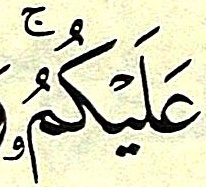 عَلَيْكُمُ ۚ